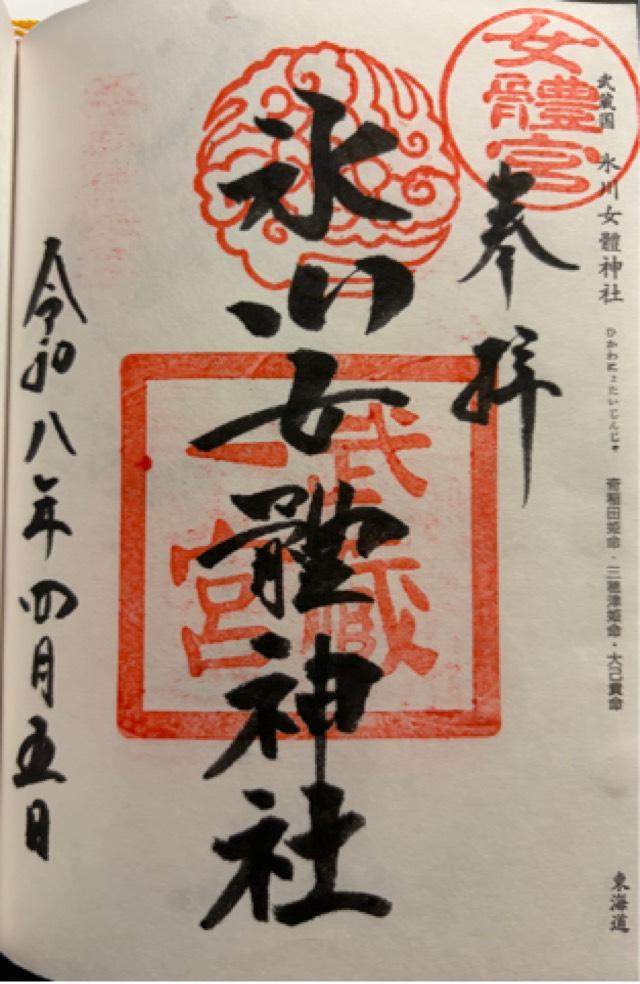 武蔵国 氷川女體神社 ひかわにょたいじんじゃ 奇稲田姫命・三穂津姫命・大己貴命
東海道
女體宮
奉拝
氷川女體神社
武蔵
一宮
令和八年四月五日